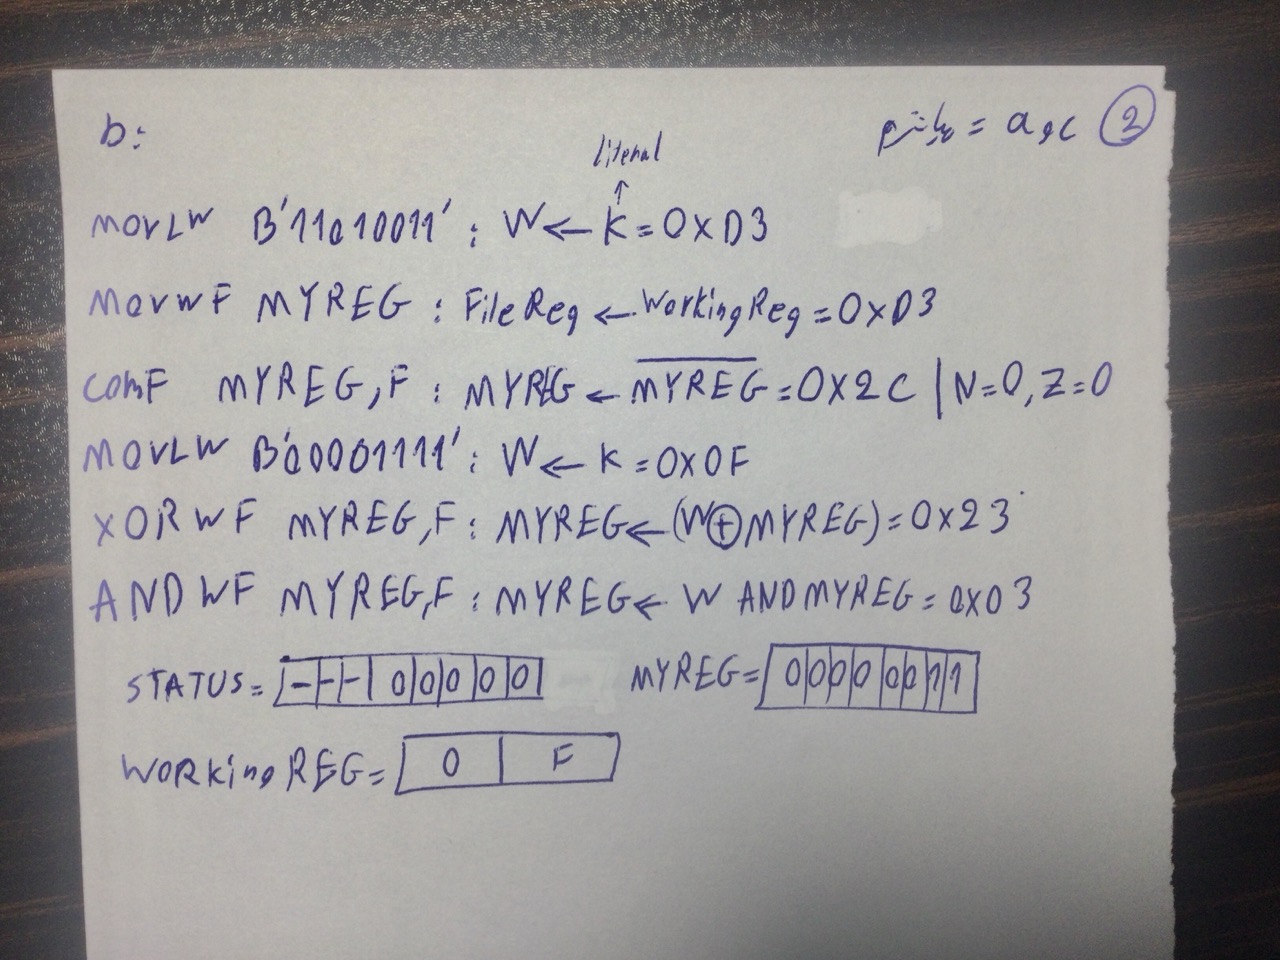 ② a و c =
b:
literal
↑
MOVLW B'11010011' : W ← K = 0XD3
MOVWF MYREG : FileReg ← WorkingReg = 0XD3
COMF MYREG,F : MYREG ← \overline{MYREG} = 0X2C | N=0, Z=0
MOVLW B'00001111' : W ← K = 0X0F
XORWF MYREG,F : MYREG ← (W⊕MYREG) = 0X23
ANDWF MYREG,F : MYREG ← W AND MYREG = 0X03
STATUS = - - - 0 0 0 0 0 MYREG = 0 0 0 0 0 0 1 1
WORKing REG = 0 F